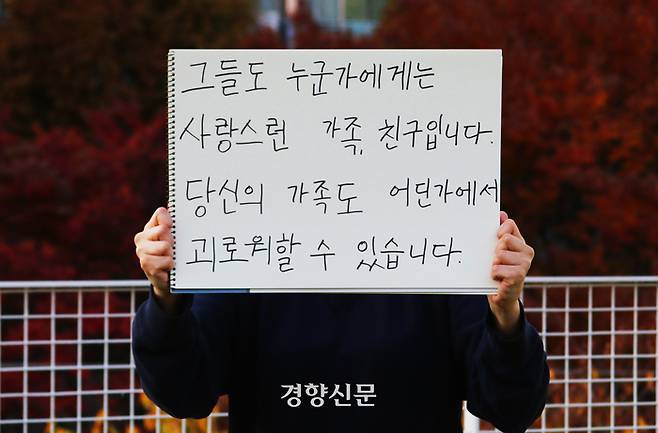 그들도 누군가에게는
사랑스런 가족, 친구입니다.
당신의 가족도 어딘가에서
괴로워할 수 있습니다.
경향신문